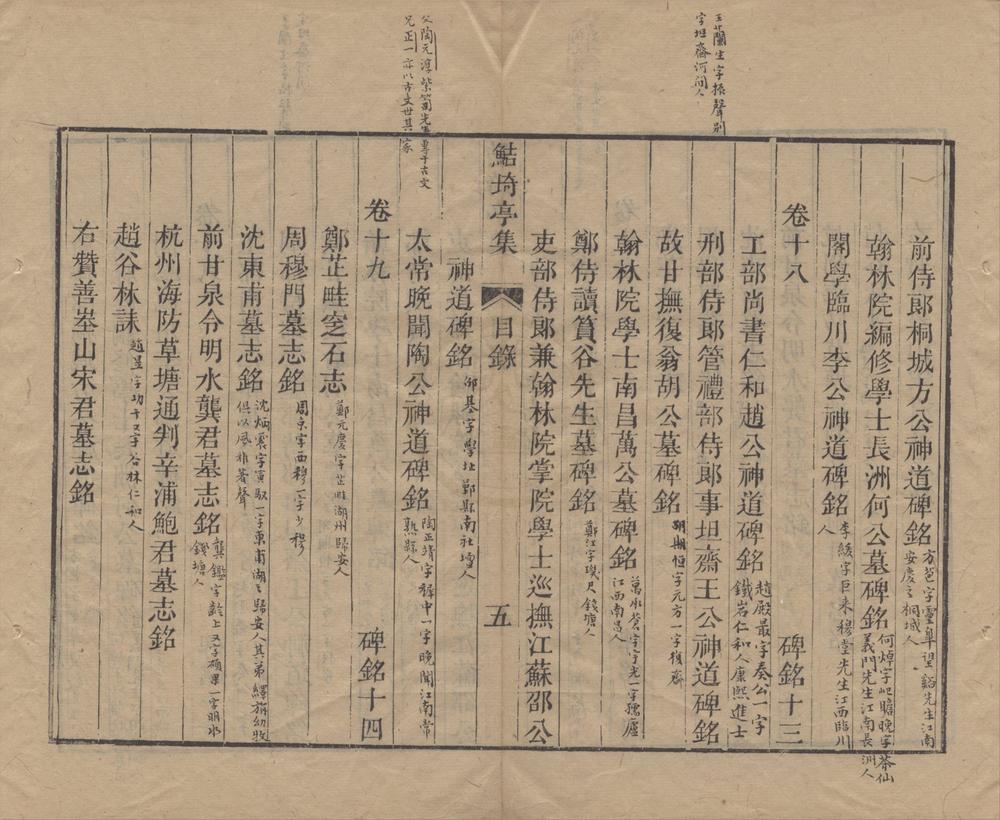 前侍郎桐城方公神道碑銘
方苞字靈皐望谿先生江南
安慶之桐城人
翰林院編修學士長洲何公墓碑銘
何焯字屺瞻晚字茶仙
義門先生江南長洲人
閣學臨川李公神道碑銘
李紱字巨來穆堂先生江西臨川
人
卷十八
碑銘十三
工部尚書仁和趙公神道碑銘
趙殿最字奏公一字
鐵岩仁和人康熙進士
刑部侍郎管禮部侍郎事坦齋王公神道碑銘
王蘭生字振聲別
字坦齋河間人
故甘撫復翁胡公墓碑銘
胡期恒字元方一字復齋
翰林院學士南昌萬公墓碑銘
萬承蒼字宇光一字孺廬
江西南昌人
鄭侍讀篔谷先生墓碑銘
鄭江字璣尺錢塘人
吏部侍郎兼翰林院掌院學士巡撫江蘇邵公
鮚埼亭集
目錄
五
神道碑銘
邵基字學址鄞縣南社壇人
太常晚聞陶公神道碑銘
陶正靖字穉中一字晚聞江南常
熟縣人
父陶元淳紫笥先生專于古文
兄正一亦以古文世其家
卷十九
碑銘十四
鄭芷畦窆石志
鄭元慶字芷畦湖州歸安人
周穆門墓志銘
周京字西穆一字少穆
沈東甫墓志銘
沈炳震字寅馭一字東甫湖之歸安人其弟繹旃幼牧
俱以風雅著聲
前甘泉令明水龔君墓志銘
龔鑑字齡上又字碩果一字明水
錢塘人
杭州海防草塘通判辛浦鮑君墓志銘
趙谷林誄
趙昱字功千又字谷林仁和人
右贊善峚山宋君墓志銘